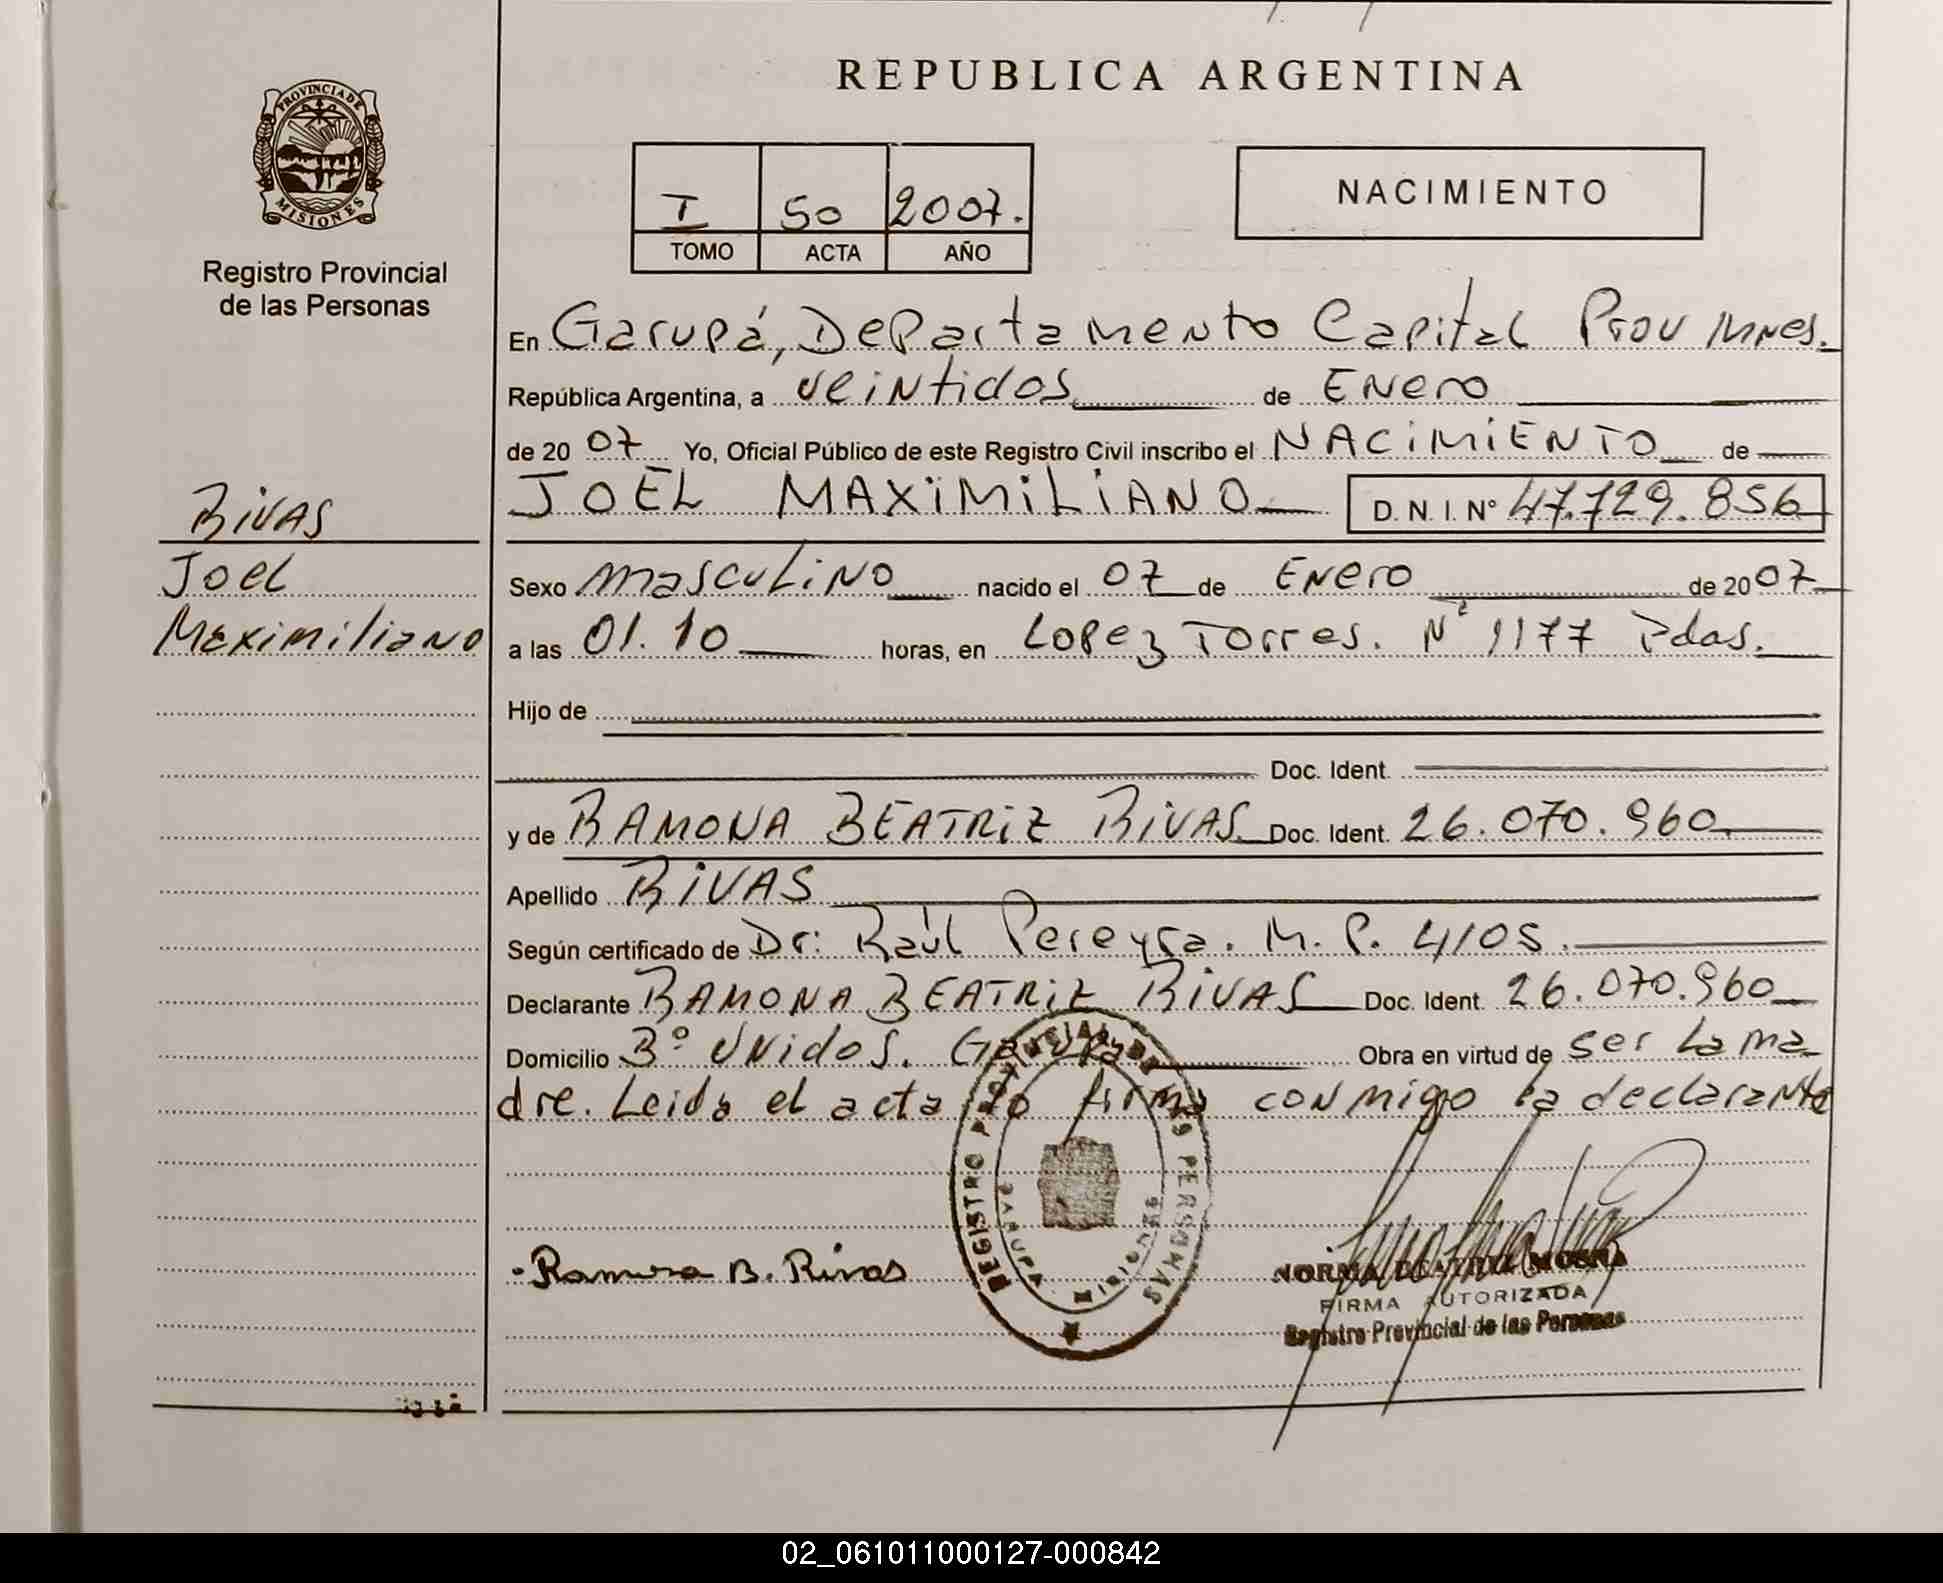 REPUBLICA ARGENTINA
PROVINCIA DE MISIONES
Registro Provincial
de las Personas
I 50 2007.
TOMO ACTA AÑO
NACIMIENTO
En Garupá, Departamento Capital Prov Mnes.
República Argentina, a veintidos de Enero
de 2007 Yo, Oficial Público de este Registro Civil inscribo el NACIMIENTO de
JOEL MAXIMILIANO D.N.I. N° 47.729.856
Rivas
Joel
Maximiliano
Sexo masculino nacido el 07 de Enero de 2007
a las 01.10 horas, en Lopez Torres. N° 1177 Pdas.
Hijo de
Doc. Ident.
y de RAMONA BEATRIZ RIVAS Doc. Ident. 26.070.960
Apellido RIVAS
Según certificado de Dr: Raúl Pereyra. M.P. 4105.
Declarante RAMONA BEATRIZ RIVAS Doc. Ident 26.070.960
Domicilio Bº Unidos. Garupá Obra en virtud de ser la ma
dre. Leida el acta la firma conmigo la declarante
REGISTRO PROVINCIAL DE LAS PERSONAS
GARUPA MISIONES
Ramona B. Rivas
NORMA BEATRIZ
FIRMA AUTORIZADA
Registro Provincial de las Personas
02_061011000127-000842